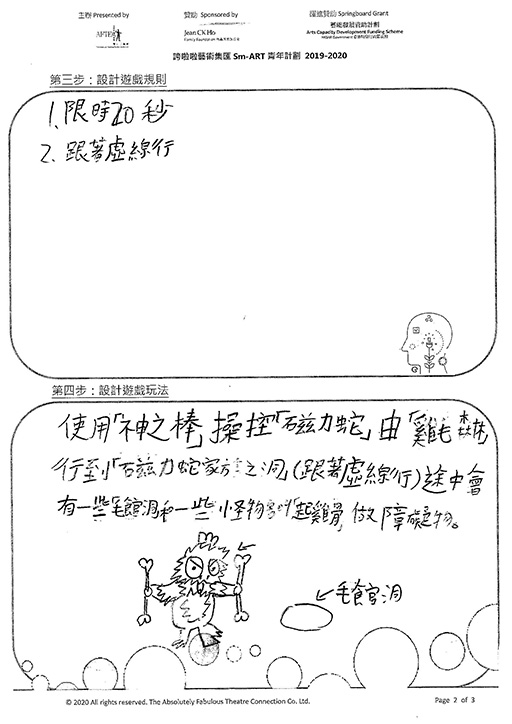 主辦 Presented by
贊助 Sponsored by
躍踏資助 Springboard Grant
AFTEC
Jean CK Ho
Family Foundation
藝能發展資助計劃
Arts Capacity Development Funding Scheme
誇啦啦藝術集匯 Sm-ART 青年計劃 2019-2020
第三步：設計遊戲規則
1. 限時20秒
2. 跟著虛線行
第四步：設計遊戲玩法
使用「神之棒」操控「磁力蛇」由「雞毛森林」
行到「磁力蛇家族之洞」(跟著虛線行)途中會
有一些毛館洞和一些小怪物叫「起雞骨」做障礙物。
毛館洞
© 2020 All rights reserved. The Absolutely Fabulous Theatre Connection Co. Ltd.
Page 2 of 3